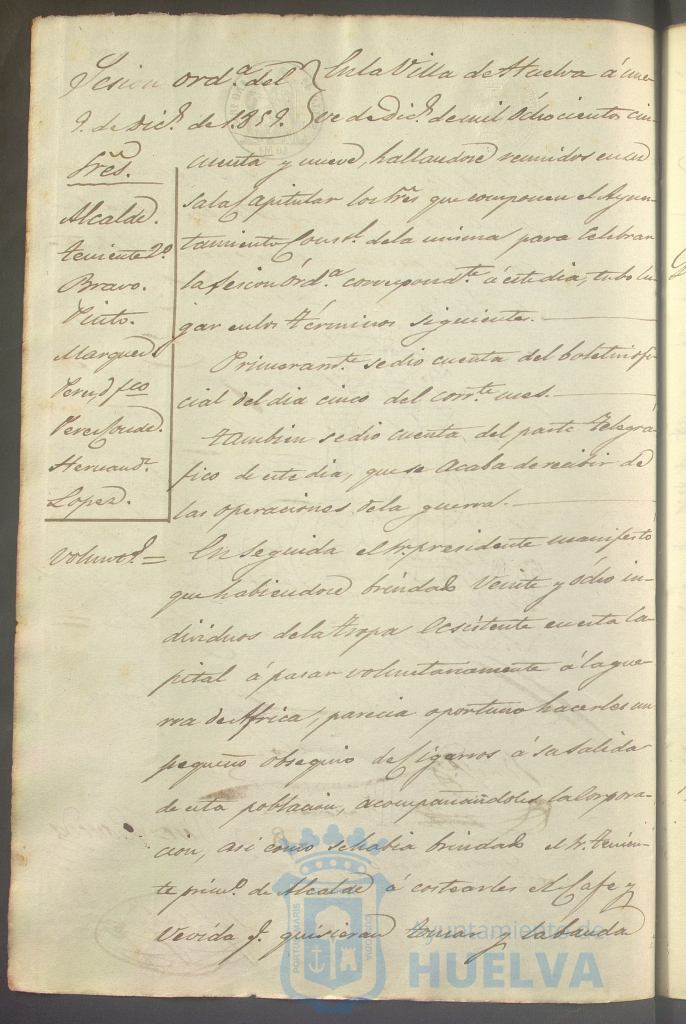 Sesion ord.ª del
9. de Dic.e de 1.859.
En la Villa de Huelva á nue-
ve de Dic.e de mil ochocientos cin-
cuenta y nueve, hallandose reunidos en su
sala Capitular los Sres que componen el Ayun-
tamiento Const.l de la misma para celebrar
la sesion ord.ª correspond.te á este dia, tubo lu-
gar en los términos siguientes.
Sres.
Alcalde.
Teniente 2º
Bravo.
Pinto.
Marquez
Perez fco
Perez Conde.
Hernandz.
Lopez.
Primeram.te se dio cuenta del boletin ofi-
cial del dia cinco del corr.te mes.
Tambien se dio cuenta del parte telegra-
fico de este dia, que se acaba de recibir de
las operaciones de la guerra.
Volunt.s =
En seguida el Sr. presidente manifestó
que habiendose brindado veinte y ocho in-
dividuos de la tropa ecsistente en esta Ca-
pital á pasar voluntariamente á la gue-
rra de Africa, parecia oportuno hacerles un
pequeño obsequio de Cigarros á su salida
de esta poblacion, acompañandoles la Corpora-
cion, asi como se habia brindado el Sr. tenien-
te prim.o de Alcalde á costearles el Cafe y
vevida q. quisieran tomar y la banda
Ayuntamiento de
HUELVA
PORTUS MARIS